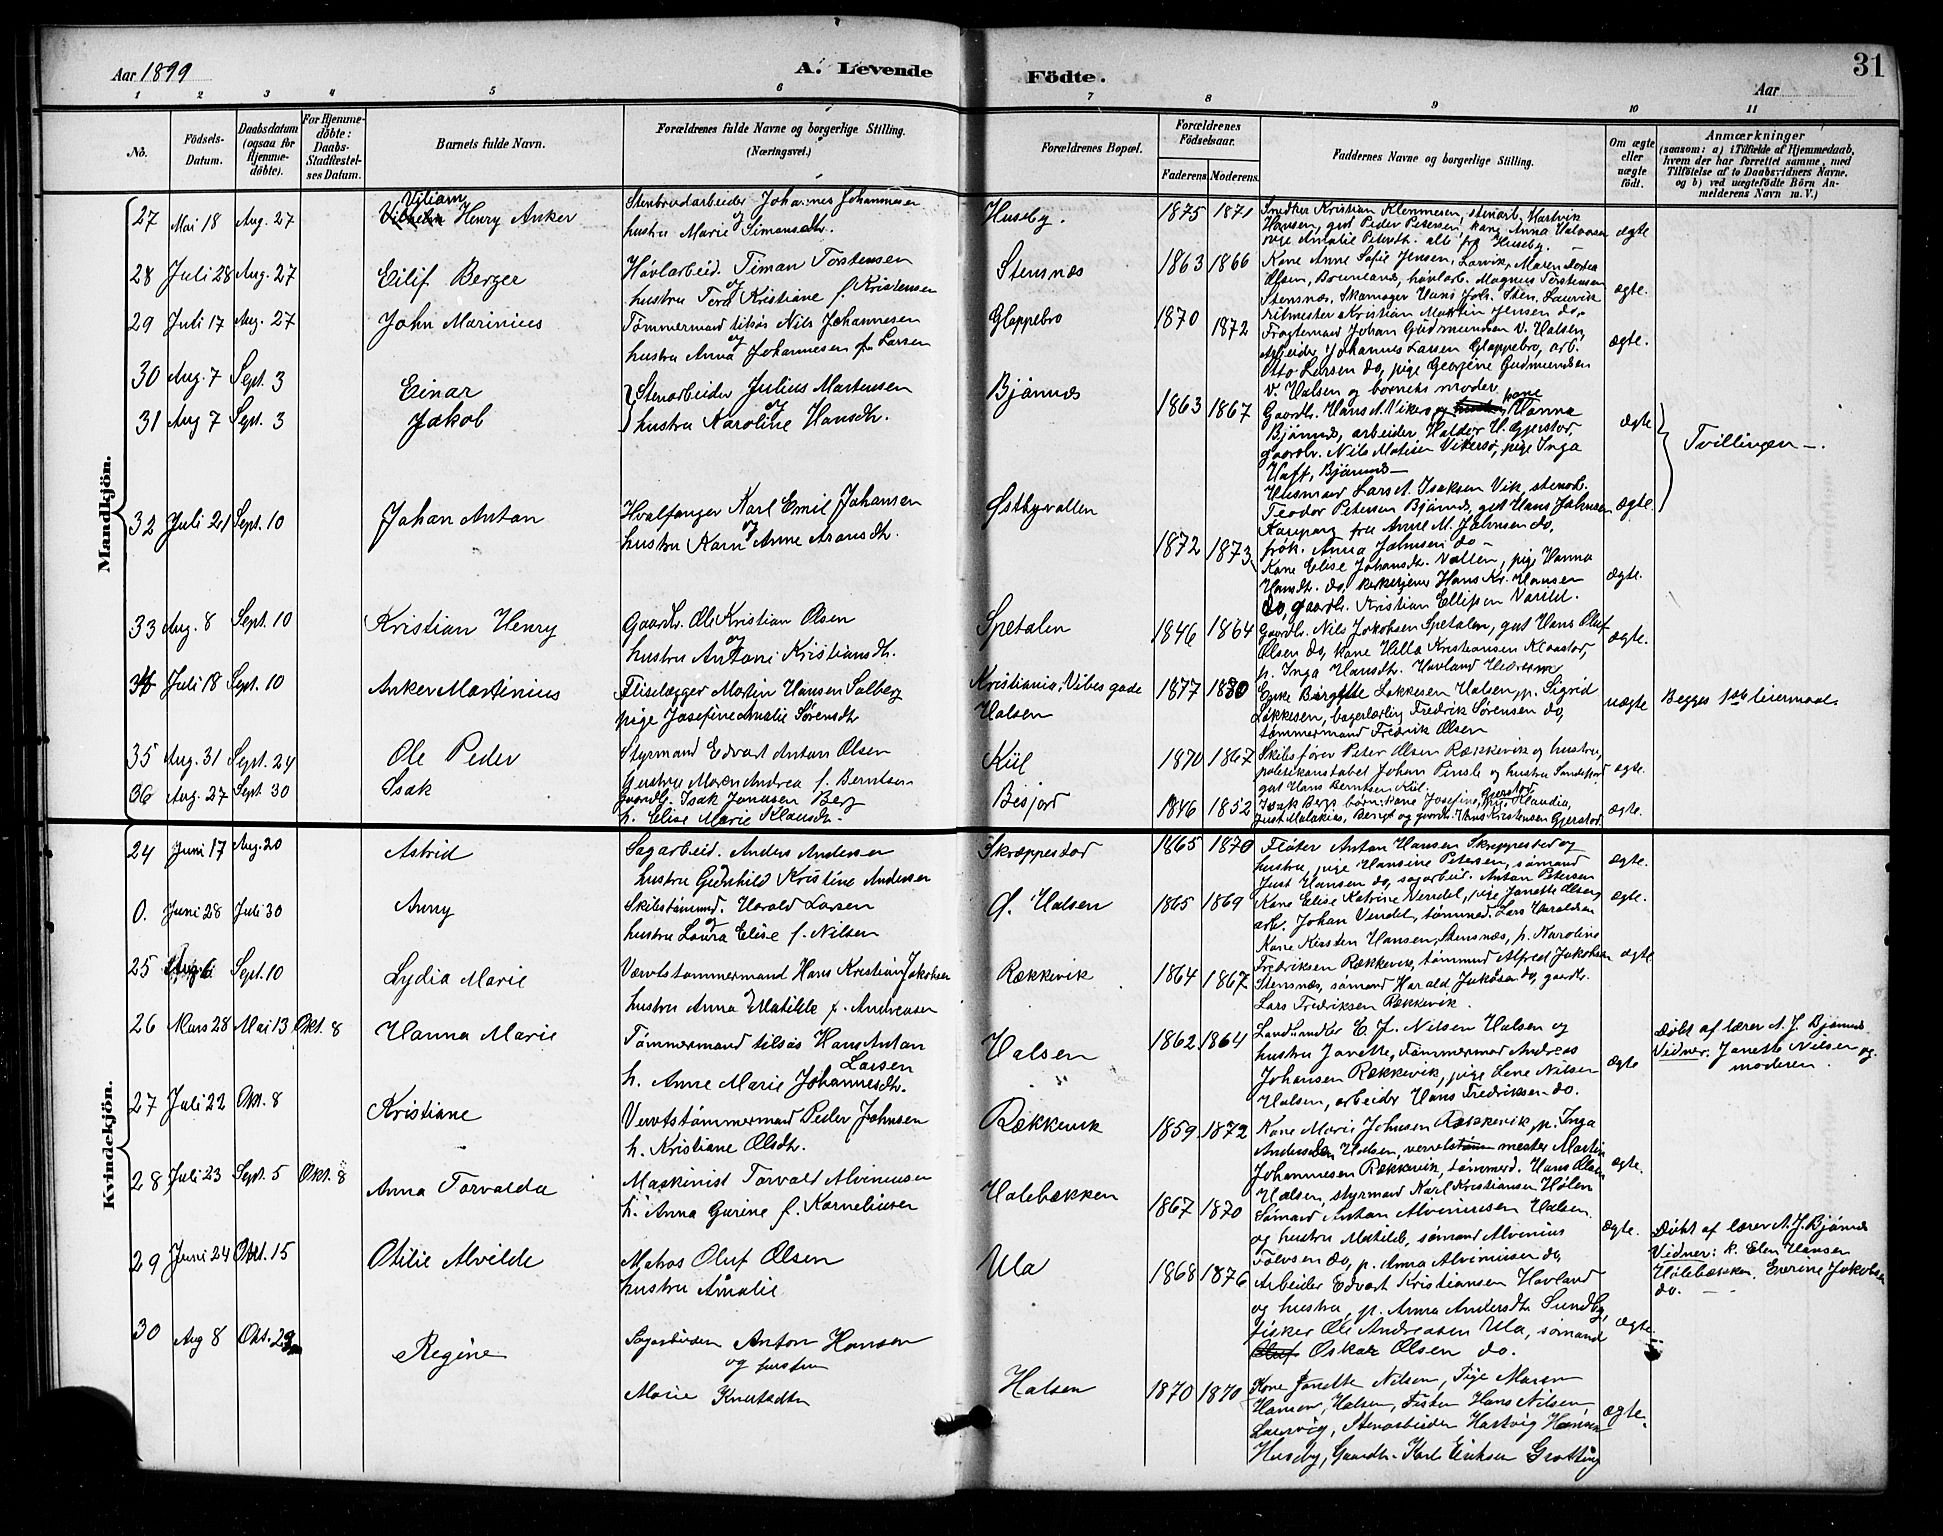 Aar 1899
A. Levende Födte.
Aar
31
1 2 3 4 5 6 7 8 9 10 11
No.
Födsels-Datum.
Daabsdatum (ogsaa for Hjemme-döbte).
For Hjemme-döbte: Daabs-Stadfæstel-ses Datum.
Barnets fulde Navn.
Forældrenes fulde Navne og borgerlige Stilling. (Næringsvei.)
Forældrenes Bopæl.
Forældrenes Födselsaar.
Faderens. Moderens.
Faddernes Navne og borgerlige Stilling.
Om ægte eller uægte födt.
Anmærkninger
(saasom: a) i Tilfælde af Hjemmedaab, hvem der har forrettet samme, med Tilföielse af to Daabsvidners Navne. og b) ved uægtefödte Börn An-melderens Navn m. V.)
Mandkjön.
27 Mai 18 Aug. 27 Viliam Henry Anker
Stenbrudarbeider Johannes Johannesen
og
hustru Marie Simonsdtr.
Huseby. 1875 1871
Snedker Kristian Klemmesen, stenarb. Hartvik
Hansen, gut Peder Petersen, kone Anna Halvorsen
pige Amalie Petersdt. alle fra Huseby.
ægte
28 Juli 28 Aug. 27 Eilif Berger
Høvlarbeid. Timan Torstensen
og
hustru Tora Kristiane f. Kristensen
Stensnæs 1863 1866
Kone Anne Sofie Jensen, Larvik, Maren Dortea
Olsen, Brunlanæs, høvlarb. Magnus Torstensen
Stensnæs, Skomager Hans Joh. Sten, Laurvik
ritmester Kristian Martin Jensen do.
ægte.
29 Juli 17 Aug. 27 John Marinius
Tømmermand tilsøs Nils Johannesen
og
hustru Anna Johannesen f. Larsen
Gloppebro 1870 1872
Fragtemand Johan Gudmundsen V. Halsen,
Arbeider Johannes Larsen Gloppebro, arb.
Otto Larsen do, pige Georgine Gudmundsen
V. Halsen og barnets moder
ægte.
30 Aug. 7 Sept. 3 Einar
31 Aug 7 Sept. 3 Jakob
Stenarbeider Julius Martensen
og
hustru Karoline Hansdtr.
Bjønnes 1863 1867
Gaardbr. Hans A. Vikersø og kone Hanna
Bjønnes, arbeider Haldor H. Gjerstad,
gaardbr. Nils Matisen Vikersø, pige Inga
Bjønnes —
Husmand Lars A. Isaksen Vik, stenarb.
Teodor Petersen Bjønnes, gut Hans Johnsen
fru Anne M. Johnsen do,
frøk. Anna Johnsen do —
ægte
ægte.
Tvillinger —.
32 Juli 21 Sept. 10 Johan Anton
Hvalfanger Karl Emil Johansen
og
hustru Karn Anne Aronsdtr.
Østbyvallen 1872 1873
Kone Elise Johansdt. Vallen, pige Hanna
Hansdt. do, kirketjener Hans Kr. Hansen
do, gaardbr. Kristian Ellefsen Varild.
ægte.
33 Aug. 8 Sept. 10 Kristian Henry
Gaardbr. Ole Kristian Olsen
og
hustru Antoni Kristiansdtr.
Spetalen 1846 1864
Gaardbr. Nils Jakobsen Spetalen, gut Hans Oluf
Olsen do, kone Hella Kristiansen Klaastad,
p. Inga Hansdt. Hovland Hedrum
ægte.
34 Juli 18 Sept. 10 Anker Martinius
Fliselægger Martin Hansen Solberg
pige Josefine Amalie Sørensdtr
Kristiania, Vibes gade
Halsen
1877 1880
Enke Birgitte Løkkesen Halsen, p. Sigrid
Løkkesen, bagerlærling Fredrik Sørensen do,
tømmermand Fredrik Olsen
uægte
Begges 1ste leiermaal
35 Aug. 31 Sept. 24 Ole Peder
Styrmand Edvart Anton Olsen
hustru Maren Andrea f. Berntsen
Kiil 1870 1867
Skibsfører Peter Olsen Rækkevik og hustru,
politikonstabel Johan Pinsle og hustru Sandefjord
gut Hans Berntsen Kiil.
ægte.
36 Aug. 27 Sept 30 Isak
Gaardbr. Isak Jonasen Berg
h. Elise Marie Klausdtr. -
Besjord 1846 1852
Isak Bergs børn: kone Josefine, Gjerstad, pige Klaudia,
Just Malakias, Bengt og gaardbr. Hans Kristensen Gjerstad
ægte.
Kvindekjön.
24 Juni 17 Aug. 20 Astrid
Sagarbeid. Anders Andersen
hustru Gunhild Kristine Andersen
Skræppestad 1865 1870
Fløter Anton Hansen Skreppestad og
hustru, pige Hansine Petersen, sømand
Just Hansen do, sagarbeid. Anton Petersen
ægte.
0. Juni 28 Juli 30 Anny
Skibstømmd. Harald Larsen
og
hustru Laura Elise f. Nilsen
Ø. Halsen 1865 1869
Kone Elise Katrine Vendel, pige Janette Olsen
arb. Johan Vendel, tømmed. Lars Haraldsen
ægte.
25 Aug. 6 Sept. 10 Lydia Marie
Værvtstømmermand Hans Kristian Jakobsen
og
hustru Anna Matilde f. Andreasen
Rækkevik 1864 1867
Kone Kirsten Hansen, Stensnæs, p. Karoline
Fredriksen Rækkevik, tømmermd Alfred Jakobsen
Stensnæs, sømand Harald Jakobsen do, gaardbr.
Lars Fredriksen Rækkevik.
ægte
26 Mars 28 Mai 13 Okt. 8 Hanna Marie
Tømmermand tilsøs Hans Anton
Larsen
h. Anne Marie Johannesdtr.
Halsen 1862 1864
Landhandler E. J. Nilsen Halsen og
hustru Janette, Tømmermand Andreas
Johansen Rækkevik, pige Lene Nilsen
Halsen, arbeider Hans Fredriksen do.
ægte
Døbt af lærer A. J. Bjønnes
Vidner: Janette Nilsen og
moderen.
27 Juli 22 Okt. 8 Kristiane
Værvtstømmermand Peder Johnsen
h. Kristiane Olsdtr.
Rækkevik 1859 1872
Kone Marie Johnsen Rækkevik, p. Inga
Andersen Halsen, værvtsmester Martin
Johannesen Rækkevik, tømmerd. Hans Olsen
Halsen, styrmand Karl Kristiansen Holen
ægte.
28 Juli 23 Sept. 5 Okt. 8 Anna Torvalda
Maskinist Torvald Alviniusen
h. Anna Gurine f. Korneliusen
Holebækken 1867 1870
Sømand Anton Alviniusen Halsen
og hustru Matilde, sømand Alvinius
Tolvsen do, p. Anna Alviniusen do,
ægte.
Døbt af lærer A. J. Bjønnes
Vidner: k. Elen Hansen
Holebækken, Everine Jakobsen
do. — —
29 Juni 24 Okt. 15 Otilie Alvilde
Matros Oluf Olsen
hustru Amalie
Ula 1868 1876
Arbeider Edvart Kristiansen Hovland
og hustru, p. Anna Andersdtr Sundby,
fisker Ole Andreasen Ula, sømand
Oskar Olsen do.
ægte.
30 Aug 8 Okt. 29 Regine
Sagarbeider Anton Hansen
og hustru
Marie Knutsdtr
Halsen 1870 1870
Kone Janette Nilsen, Pige Maren
Hansen, Halsen, Fisker Hans Nilsen,
Laurvig, Stenarbeider Hartvig Hansen
Huseby, Gaardbr. Karl Eriksen Grøtting
ægte.